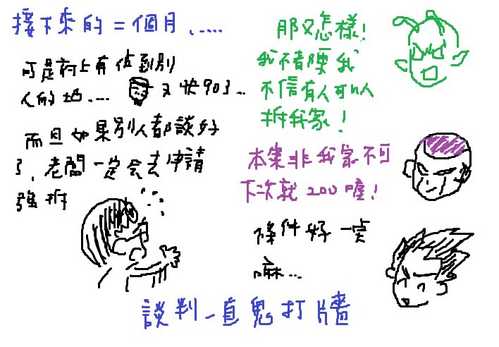 接下來的二個月、.....
可是府上有佔到別
人的地....
而且如果別人都談好
了,老闆一定會去申請
強拆
那又怎樣!
我
不信有人可以
拆我家!
本案非我家不可
下次就200喔!
條件好一點
嘛...
談判一直鬼打牆